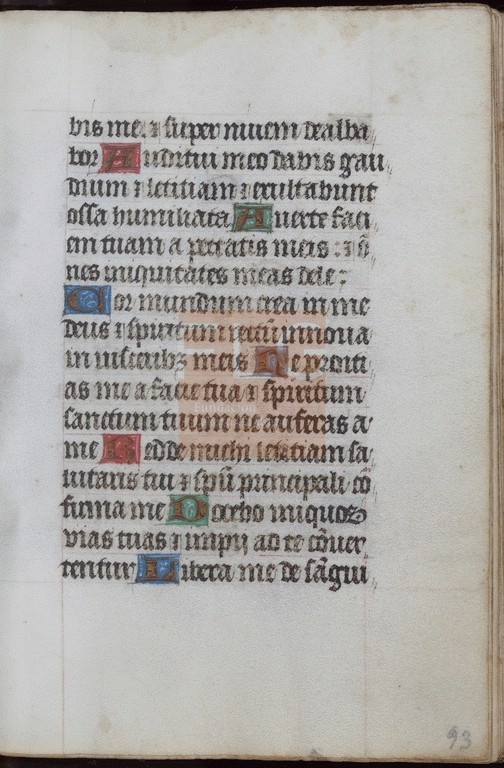 bis me. ⁊ super niuem dealba
bor Auditui meo dabis gau
dium ⁊ letitiam ⁊ exultabunt
ossa humiliata Auerte faci
em tuam a peccatis meis : ⁊ õ
nes iniquitates meas dele :
Cor mundum crea in me
deus ⁊ spiritum rectũ innoua
in uisceribꝫ meis Ne proiici
as me a facie tua ⁊ spiritum
sanctum tuum ne auferas a
me Redde michi letitiam sa
lutaris tui ⁊ spũ principali cõ
firma me Docebo iniquos
vias tuas ⁊ impij ad te cõuer
tentur Libera me de sãgui
93